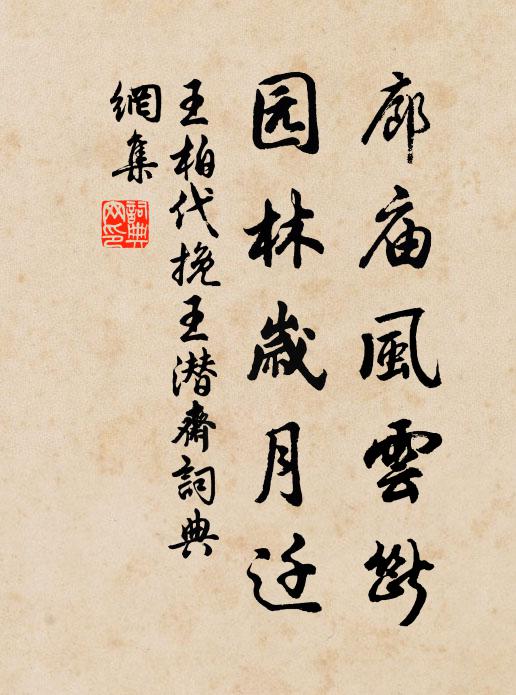 廊庙風雲斷
园林歲月迁
王柏代挽王潜齋詞典
網集
詞典
网印